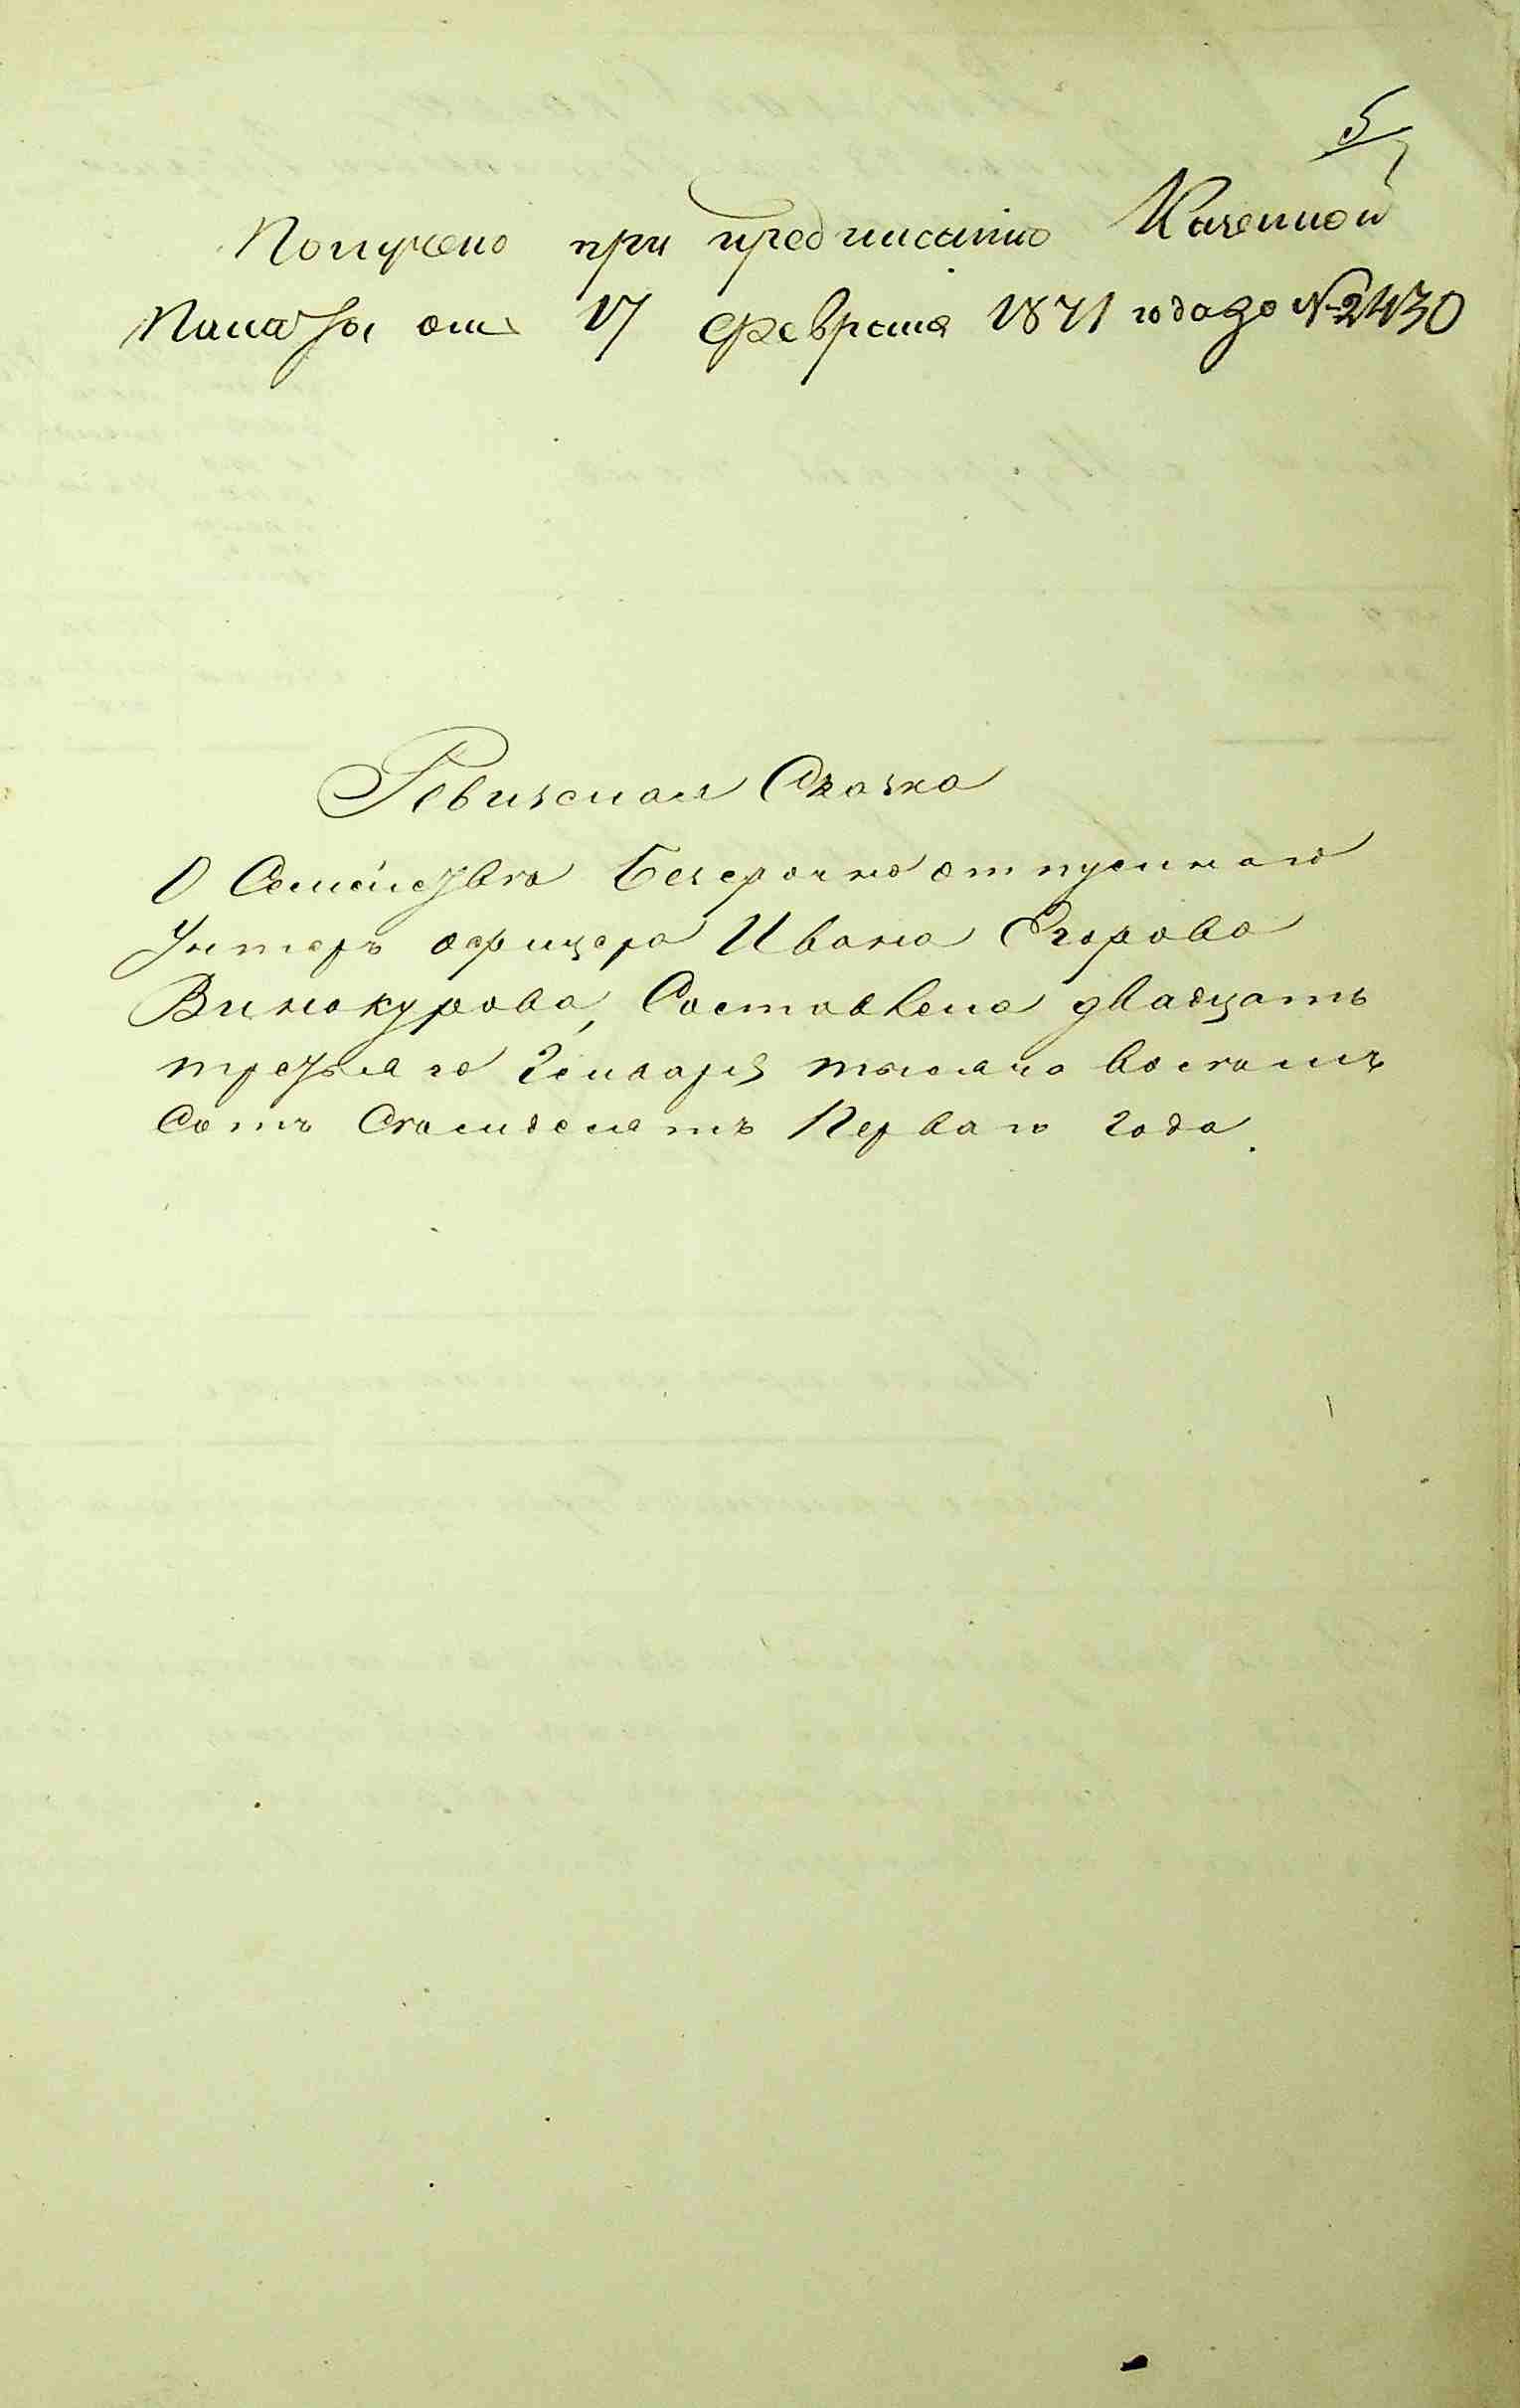 5
Получено при предписанiи Казенной
Палаты отъ 17 Февраля 1871 года за № 2430
Ревизская Сказка
О Семействѣ безсрочно отпускнаго
Унтеръ офицера Ивана Егорова
Винокурова, Составлена двадцать
третьяго Генваря тысяча восѣмъ
Сотъ Сѣмидесятъ Перваго года.